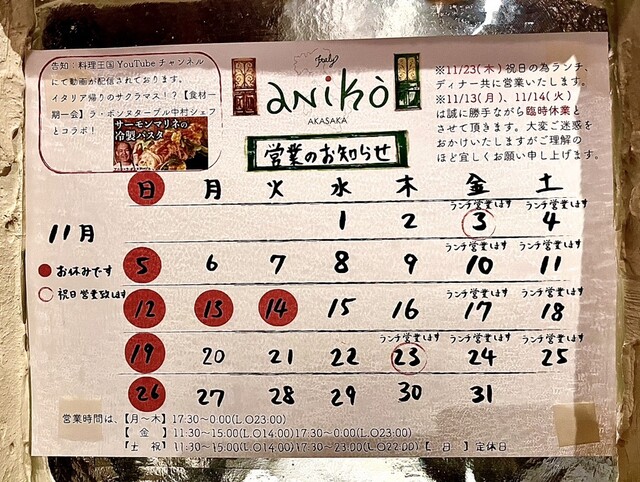 告知：料理王国YouTubeチャンネル
にて動画が配信されております。
イタリア帰りのサクラマス！？【食材一
期一会】ラ・ボンヌターブル中村シェフ
とコラボ！
サーモンマリネの
冷製パスタ
Italy
aniko
AKASAKA
営業のお知らせ
※11/23(木)祝日の為ランチ、
ディナー共に営業いたします。
※11/13(月)、11/14(火)
は誠に勝手ながら臨時休業と
させて頂きます。大変ご迷惑を
おかけいたしますがご理解の
ほど宜しくお願い申し上げます。
日 月 火 水 木 金 土
11月
お休みです
祝日営業致します
ランチ営業します ランチ営業します
1 2 3 4
ランチ営業します ランチ営業します
5 6 7 8 9 10 11
ランチ営業します ランチ営業します
12 13 14 15 16 17 18
ランチ営業します ランチ営業します ランチ営業します
19 20 21 22 23 24 25
26 27 28 29 30 31
営業時間は、【月〜木】17:30〜0:00(L.O23:00)
【 金 】11:30〜15:00(L.O14:00)17:30〜0:00(L.O23:00)
【土 祝】11:30〜15:00(L.O14:00)17:30〜23:00(L.O22:00)【 日 】定休日